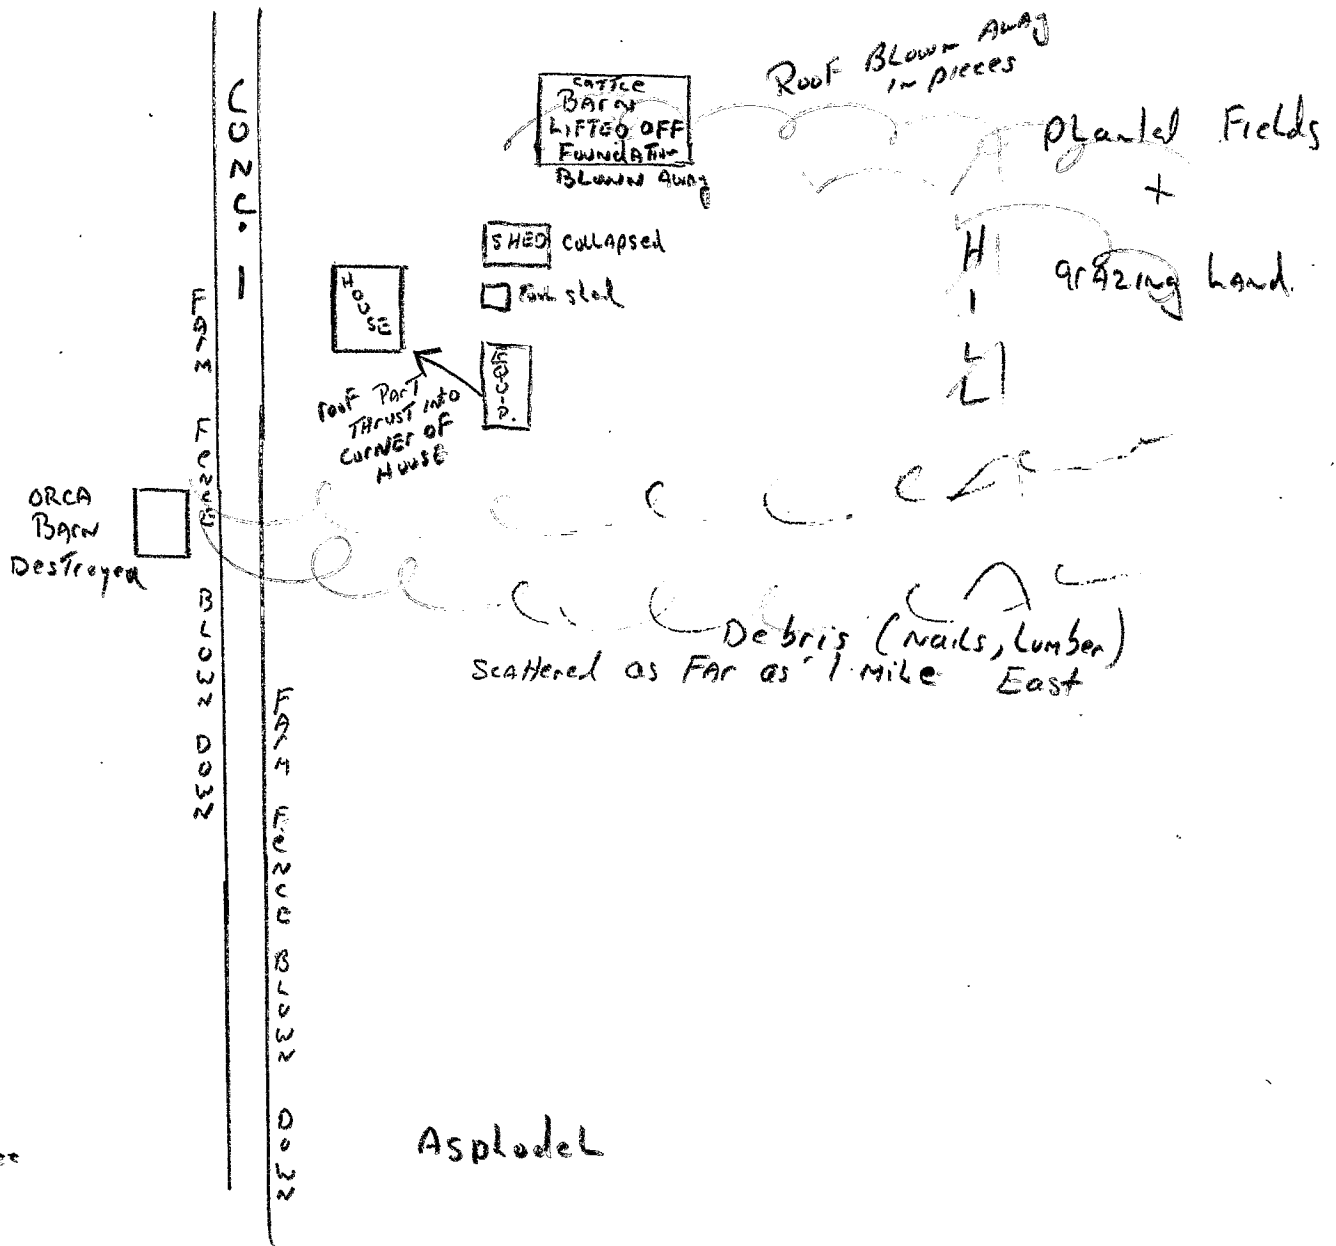 CONC. 1
CATTLE
BARN
LIFTED OFF
FOUNDATION
BLOWN AWAY
ROOF BLOWN AWAY
IN PIECES
planted Fields
+
grazing Land.
HILL
SHED COLLAPSED
HOUSE
EQUIP.
ROOF PART
THRUST INTO
CORNER OF
HOUSE
FARM FENCE BLOWN DOWN
ORCA
BARN
Destroyed
Debris (Nails, Lumber)
Scattered as FAR as 1 Mile East
FARM FENCE BLOWN DOWN
Asphodel